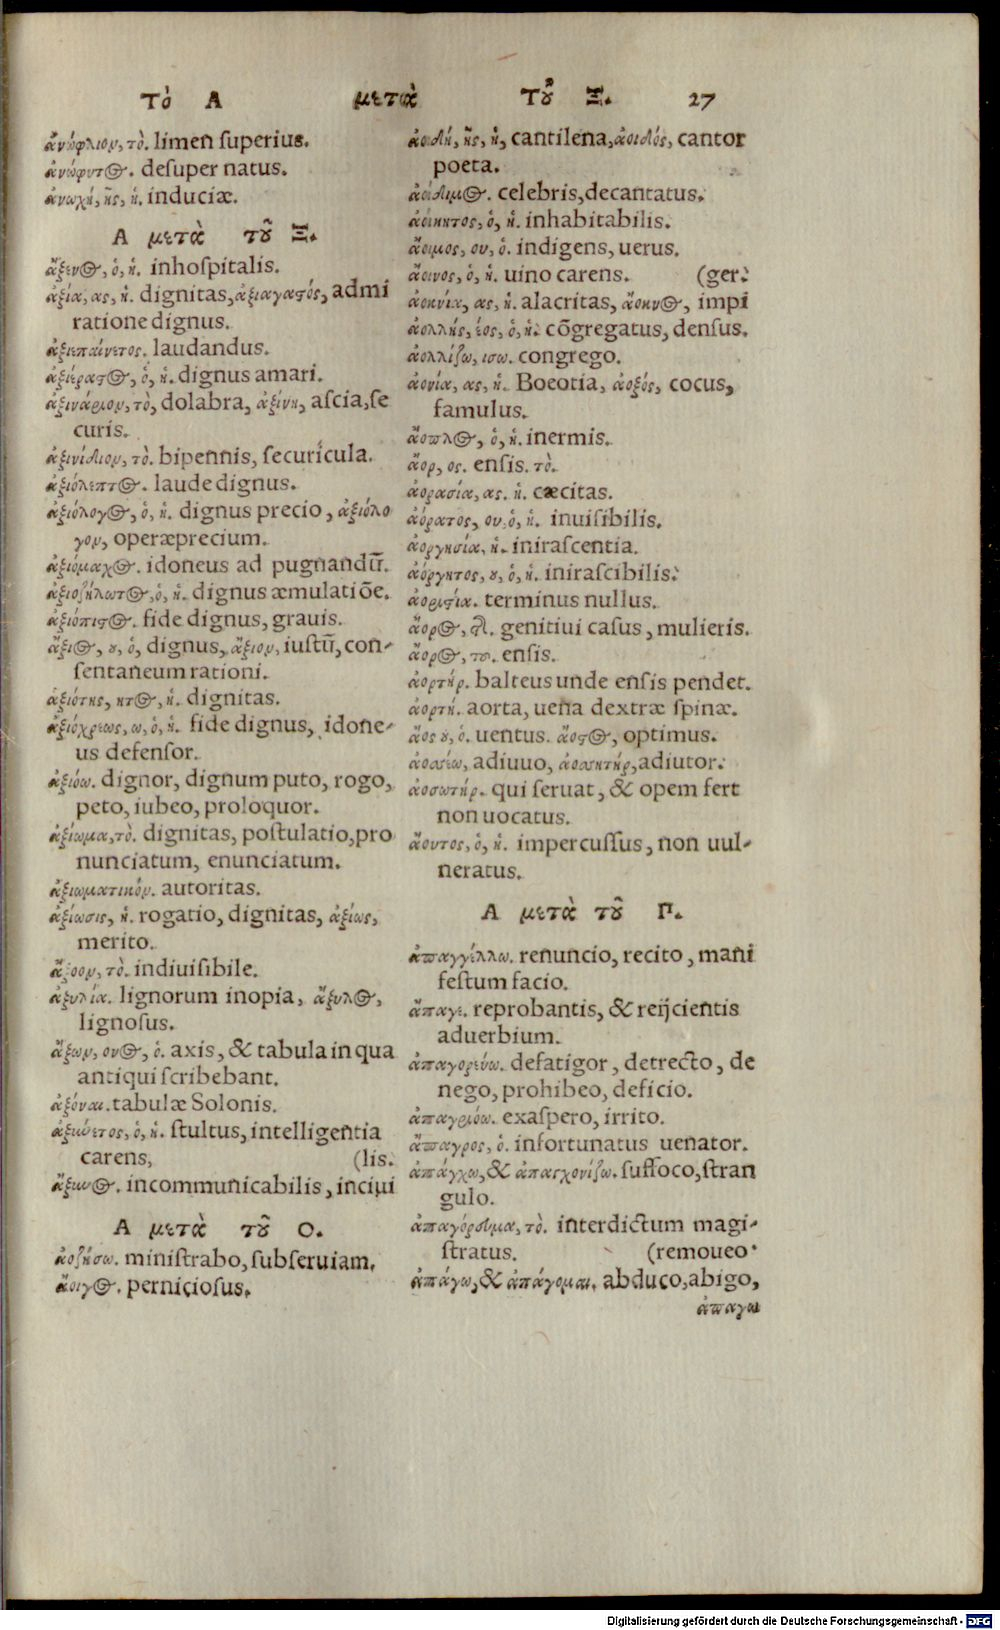 τὸ Α μετὰ τοῦ Ξ. 27
ἀνώφλιον, τὸ. limen superius.
ἀνώφυτος. desuper natus.
ἀνωχή, ῆς, ἡ. induciæ.
Α μετὰ τοῦ Ξ.
ἄξενος, ὁ, ἡ. inhospitalis.
ἀξία, ας, ἡ. dignitas, ἀξιαγαστός, admi
ratione dignus.
ἀξιεπαίνετος. laudandus.
ἀξιέραστος, ὁ, ἡ. dignus amari.
ἀξινάριον, τὸ, dolabra, ἀξίνη, ascia, se
curis.
ἀξινίδιον, τὸ. bipennis, securicula.
ἀξιόλεπτος. laude dignus.
ἀξιόλογος, ὁ, ἡ. dignus precio, ἀξιόλο
γον, operæprecium.
ἀξιόμαχος. idoneus ad pugnandū.
ἀξιοζήλωτος, ὁ, ἡ. dignus æmulatiōe.
ἀξιόπιστος. fide dignus, grauis.
ἄξιος, ου, ὁ, dignus, ἄξιον, iustū, con-
sentaneum rationi.
ἀξιότης, ητος, ἡ. dignitas.
ἀξιόχρεως, ω, ὁ, ἡ. fide dignus, idone-
us defensor.
ἀξιόω. dignor, dignum puto, rogo,
peto, iubeo, proloquor.
ἀξίωμα, τὸ. dignitas, postulatio, pro
nunciatum, enunciatum.
ἀξιωματικόν. autoritas.
ἀξίωσις, ἡ. rogatio, dignitas, ἀξίως,
merito.
ἄξοον, τὸ. indiuisibile.
ἀξυλία. lignorum inopia, ἄξυλος,
lignosus.
ἄξων, ονος, ὁ. axis, & tabula in qua
antiqui scribebant.
ἀξόναι. tabulæ Solonis.
ἀξύνετος, ὁ, ἡ. stultus, intelligentia
carens, (lis.
ἄξυνος. incommunicabilis, inciui
Α μετὰ τοῦ Ο.
ἀοζήσω. ministrabo, subseruiam.
ἄοιγος. perniciosus.
ἀοιδή, ῆς, ἡ, cantilena, ἀοιδός, cantor
poeta.
ἀοίδιμος. celebris, decantatus.
ἀοίκητος, ὁ, ἡ. inhabitabilis.
ἄοιμος, ου, ὁ. indigens, uerus.
ἄοινος, ὁ, ἡ. uino carens. (ger.
ἀοκνία, ας, ἡ. alacritas, ἄοκνος, impi
ἀολλής, έος, ὁ, ἡ. cōgregatus, densus.
ἀολλίζω, ισω. congrego.
ἀονία, ας, ἡ. Boeotia, ἀοξός, cocus,
famulus.
ἄοπλος, ὁ, ἡ. inermis.
ἄορ, ος. ensis. τὸ.
ἀορασία, ας. ἡ. cæcitas.
ἀόρατος, ου, ὁ, ἡ. inuisibilis.
ἀοργησία, ἡ. inirascentia.
ἀόργητος, ου, ὁ, ἡ. inirascibilis.
ἀοριστία. terminus nullus.
ἄορος, genitiui casus, mulieris.
ἄορος, του. ensis.
ἀορτήρ. balteus unde ensis pendet.
ἀορτή. aorta, uena dextræ spinæ.
ἄος ου, ὁ. uentus. ἄοτος, optimus.
ἀοσσέω, adiuuo, ἀοσσητήρ, adiutor.
ἀοσωτήρ. qui seruat, & opem fert
non uocatus.
ἄουτος, ὁ, ἡ. impercussus, non uul-
neratus.
Α μετὰ τοῦ Π.
ἀπαγγέλλω. renuncio, recito, mani
festum facio.
ἄπαγε. reprobantis, & reijcientis
aduerbium.
ἀπαγορεύω. defatigor, detrecto, de
nego, prohibeo, deficio.
ἀπαγριόω. exaspero, irrito.
ἄπαγρος, ὁ. infortunatus uenator.
ἀπάγχω, & ἀπαγχονίζω. suffoco, stran
gulo.
ἀπαγόρευμα, τὸ. interdictum magi-
stratus. (remoueo
ἀπάγω, & ἀπάγομαι. abduco, abigo,
ἀπαγω
Digitalisierung gefördert durch die Deutsche Forschungsgemeinschaft - DFG